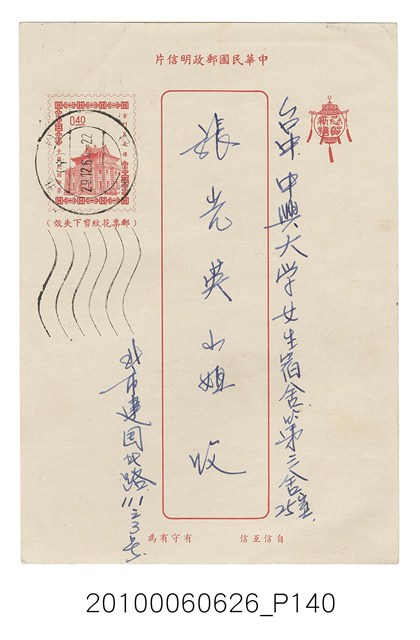 中華民國郵政明信片
恭賀新禧
0.40
29.12.6
22
(郵票花紋剪下失效)
台中中興大学女生宿舍第三舍25室
張光英小姐收
北市建国北路111之3号
自信互信 有守有為
20100060626_P140